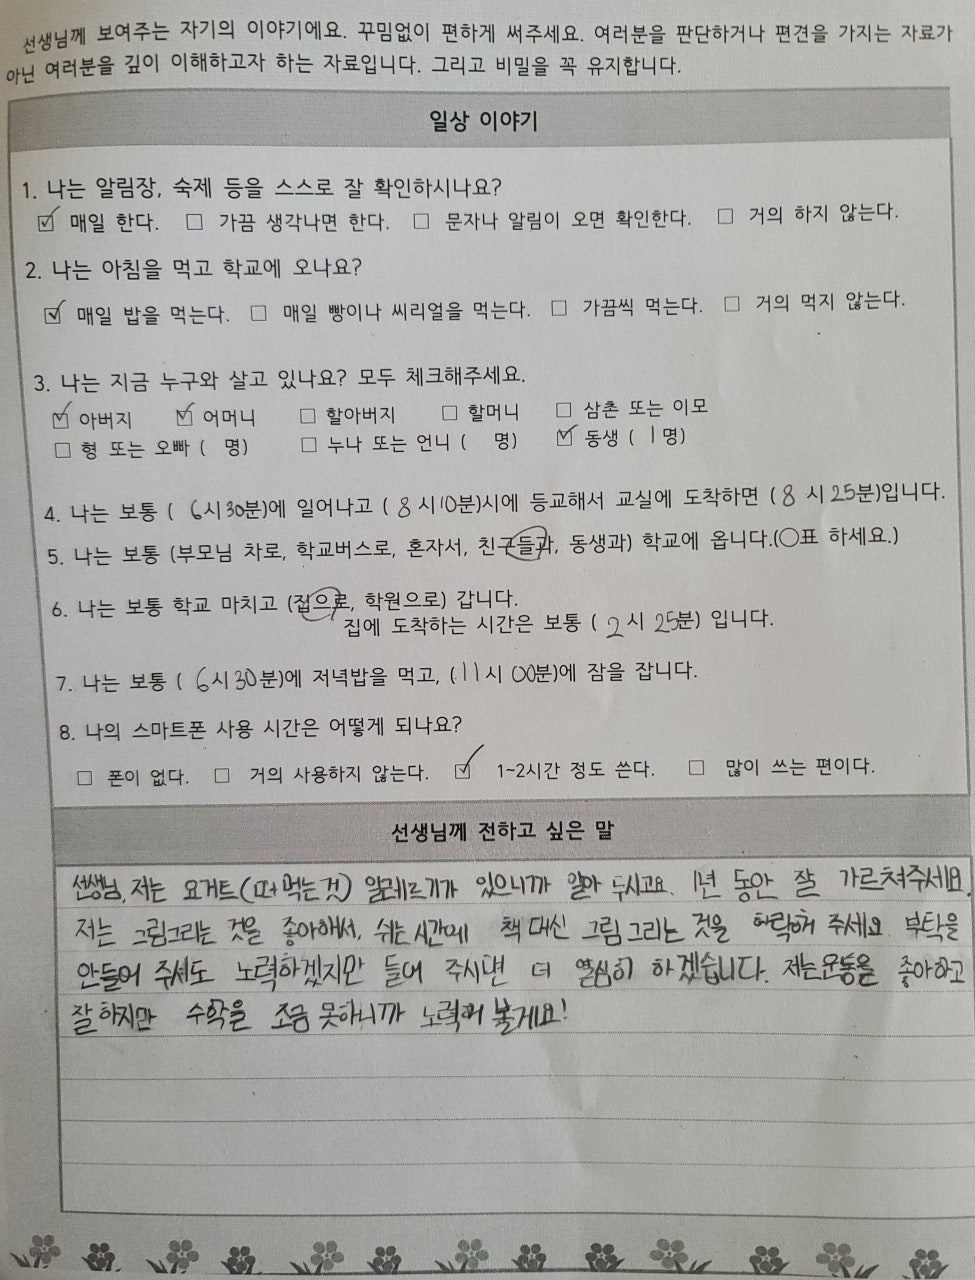 선생님께 보여주는 자기의 이야기에요. 꾸밈없이 편하게 써주세요. 여러분을 판단하거나 편견을 가지는 자료가
아닌 여러분을 깊이 이해하고자 하는 자료입니다. 그리고 비밀을 꼭 유지합니다.
일상 이야기
1. 나는 알림장, 숙제 등을 스스로 잘 확인하시나요?
☑ 매일 한다. □ 가끔 생각나면 한다. □ 문자나 알림이 오면 확인한다. □ 거의 하지 않는다.
2. 나는 아침을 먹고 학교에 오나요?
☑ 매일 밥을 먹는다. □ 매일 빵이나 씨리얼을 먹는다. □ 가끔씩 먹는다. □ 거의 먹지 않는다.
3. 나는 지금 누구와 살고 있나요? 모두 체크해주세요.
☑ 아버지 ☑ 어머니 □ 할아버지 □ 할머니 □ 삼촌 또는 이모
□ 형 또는 오빠 ( 명) □ 누나 또는 언니 ( 명) ☑ 동생 ( 1명)
4. 나는 보통 ( 6시 30분)에 일어나고 ( 8 시 10분)시에 등교해서 교실에 도착하면 ( 8 시 25분)입니다.
5. 나는 보통 (부모님 차로, 학교버스로, 혼자서, 친구들과, 동생과) 학교에 옵니다.(○표 하세요.)
6. 나는 보통 학교 마치고 (집으로, 학원으로) 갑니다.
집에 도착하는 시간은 보통 ( 2시 25분) 입니다.
7. 나는 보통 ( 6시 30분)에 저녁밥을 먹고, (11시 00분)에 잠을 잡니다.
8. 나의 스마트폰 사용 시간은 어떻게 되나요?
□ 폰이 없다. □ 거의 사용하지 않는다. ☑ 1~2시간 정도 쓴다. □ 많이 쓰는 편이다.
선생님께 전하고 싶은 말
선생님, 저는 요거트(떠 먹는 것) 알레르기가 있으니까 알아 두시고요. 1년 동안 잘 가르쳐주세요.
저는 그림그리는 것을 좋아해서, 쉬는 시간에 책 대신 그림 그리는 것을 허락해 주세요 부탁을
안들어 주셔도 노력하겠지만 들어 주시면 더 열심히 하겠습니다. 저는 운동을 좋아하고
잘 하지만 수학을 조금 못하니까 노력해 볼게요!